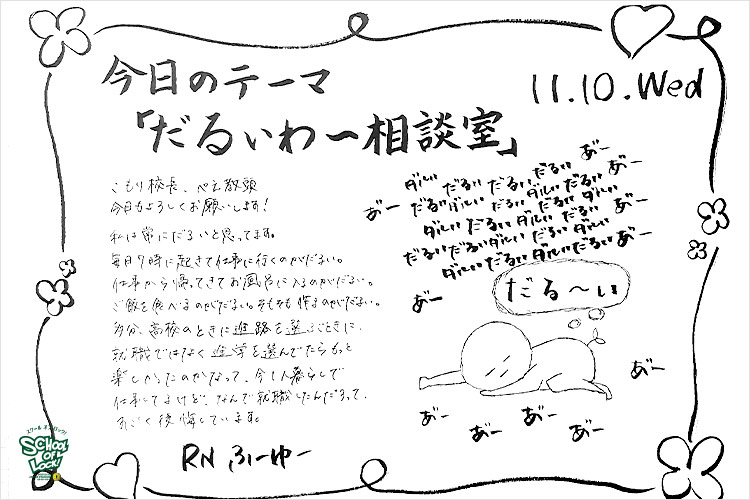 今日のテーマ
11.10.Wed
「だるいわ〜相談室」
こもり校長、ぺえ教頭
今日もよろしくお願いします!
私は常にだるいと思ってます。
毎日7時に起きて仕事に行くのがだるい。
仕事から帰ってきてお風呂に入るのがだるい。
ご飯を食べるのがだるい。そもそも作るのがだるい。
多分、高校のときに進路を選ぶときに、
就職ではなく進学を選んでたらもっと
楽しかったのかなって、今1人暮らしで
仕事してるけど、なんで就職したんだろって、
すごく後悔しています。
RN ふーゆー
あ゛ー
ダルい だるい だるい だるい あ゛ー
あ゛ー だるい ダルい だるい ダルい だるい
ダルい だるい ダルい だるい あ゛ー
だるい だるい ダルい だるい ダルい
ダルい だるい ダルい だるい あ゛ー
あ゛ー
だる〜い
あ゛ー
あ゛ー あ゛ー
あ゛ー あ゛ー
スクールオブロック!
SCHOOL
OF
LOCK!